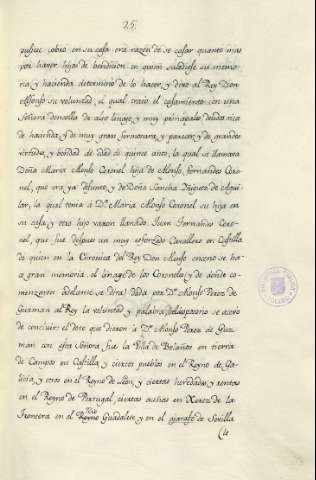 25.
pusiese cobro en su casa era razón de se casar quanto mas
por haver hijos de bendicion en quien subcediese su memo-
ria, y hacienda determino de lo hacer, y dixo al Rey Don
Alfonso su voluntad, el qual trato el casamiento con una
Señora doncella de alto linage, y muy principal de dotada
de hacienda, y de muy gran fermosura, y parecer, y de grandes
virtudes, y bondad de edad de quince años, la qual se llamava
Doña Maria Alonso Coronel hija de Alonso Fernandez Coro-
nel, que era ya defunto, y de Doña Sancha Iñiguez de Agui-
lar, la qual tenia a D.ª Maria Alonso Coronel su hija en
su casa, y otro hijo varon llamado Juan Fernandez Coro-
nel, que fue despues un muy esforzado Cavallero en Castilla
de quien en la Coronica del Rey Don Alonso onceno se ha-
ce gran memoria el linage de los Coroneles, y de donde co-
menzaron adelante se dira: dada por D.ⁿ Alonso Perez de
Guzman al Rey la voluntad y palabra del desposorio se acavo
de concluir el dote que dieron a D.ⁿ Alonso Perez de Guz-
man con esta Señora fue la Villa de Bolaños en tierra
de Campos en Castilla, y ciertos pueblos en el Reyno de Ga-
licia, y otros en el Reyno de Leon, y ciertas heredades, y rentas
en el Reyno de Portugal, ciertas aceñas en Xerez de la
Frontera en el Rio Guadalete, y en el ajarafe de Sevilla